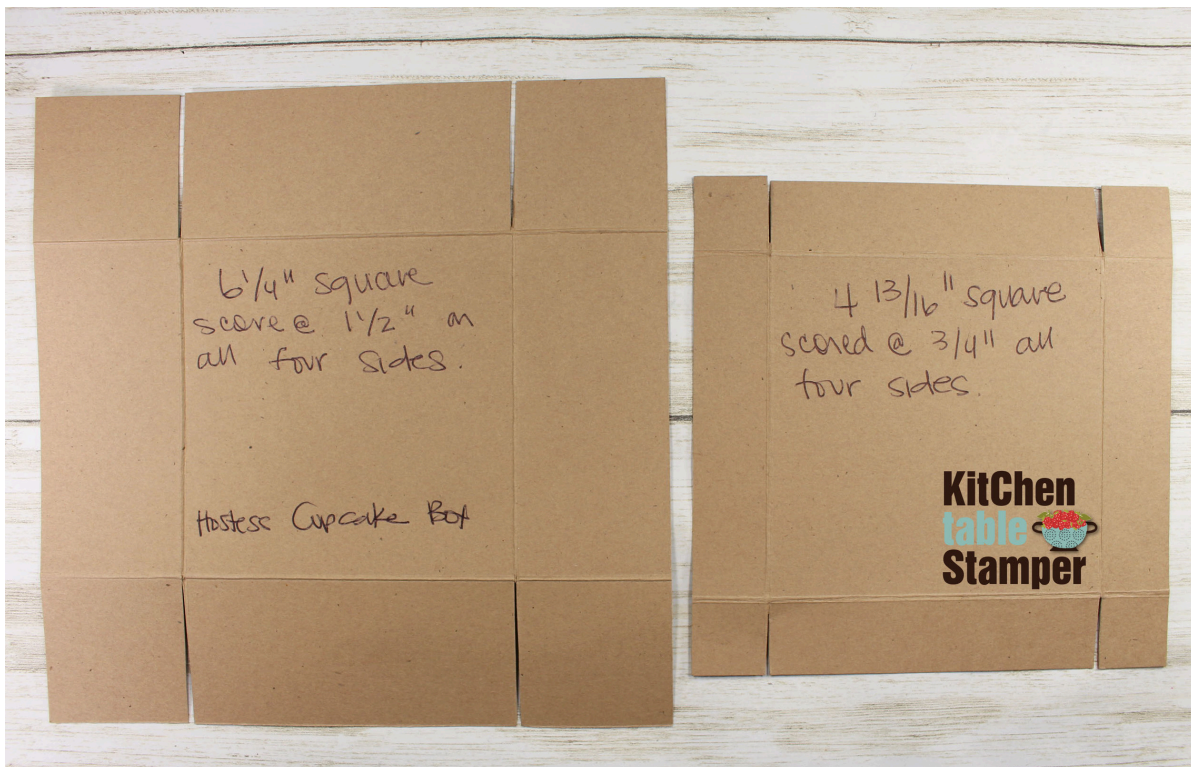 6 1/4" square
score @ 1 1/2" on
all four sides.
Hostess Cupcake Box
4 13/16" square
scored @ 3/4" all
four sides.
KitChen
table
Stamper